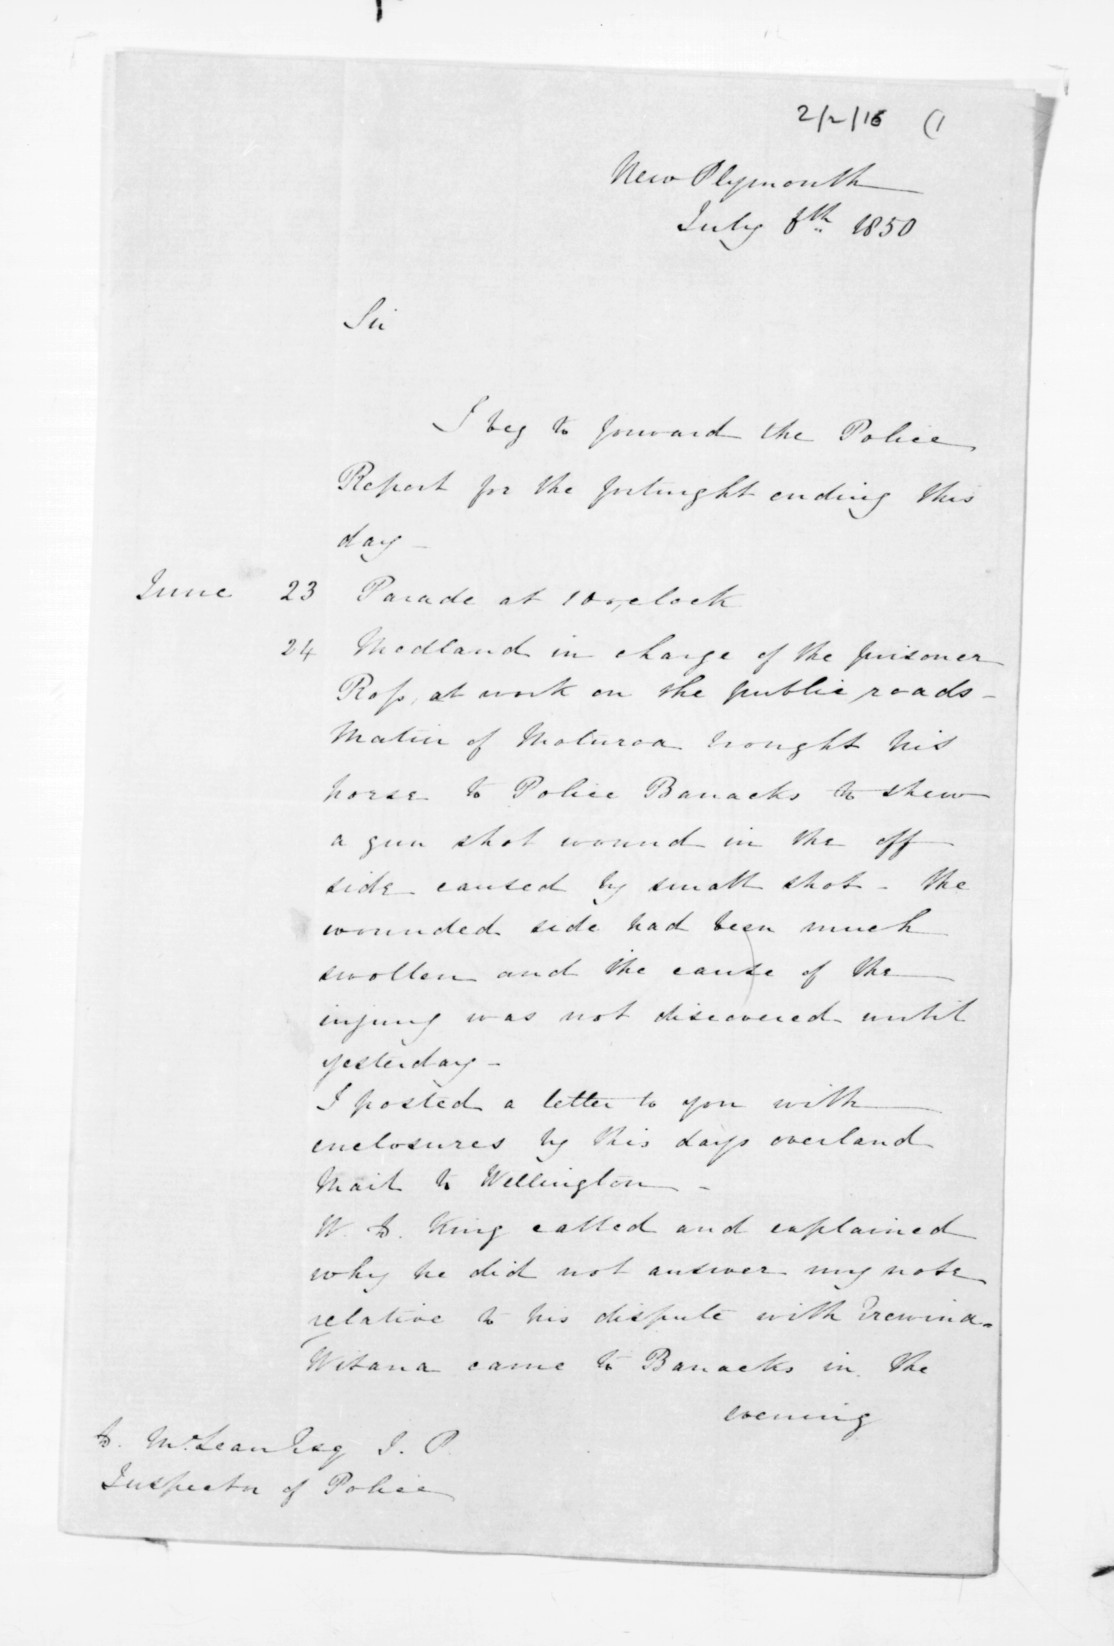 2/2/16 (1
New Plymouth
July 6th 1850
Sir
I beg to forward the Police
Report for the fortnight ending this
day -
June 23 Parade at 10 o,clock
24 Medland in charge of the prisoner
Ross, at work on the public roads -
Matiu of Moturoa brought his
horse to Police Barracks to shew
a gun shot wound in the off
side caused by small shot - the
wounded side had been much
swollen and the cause of the
injury was not discovered until
yesterday -
I posted a letter to you with
enclosures by this days overland
Mail to Wellington -
W. D. King called and explained
why he did not answer my note
relative to his dispute with Erewina -
Witana came to Barracks in the
evening
D. McLean Esq J. P.
Inspector of Police